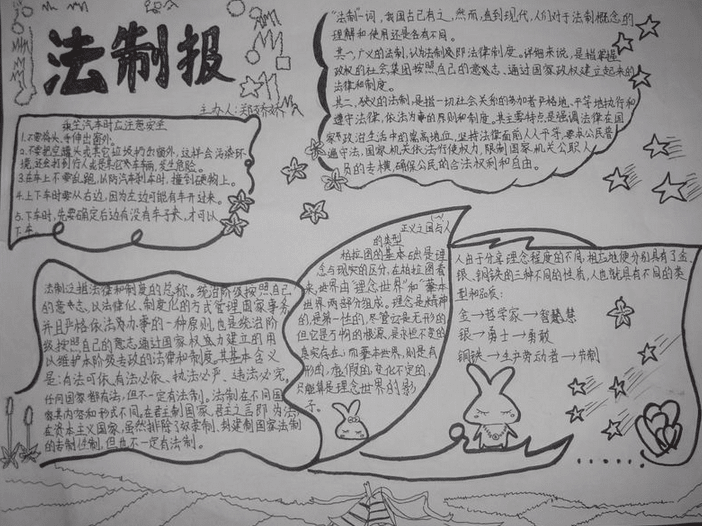 法制报
主办人:郑娇娇
乘坐汽车时应注意安全
1.不要将头、手伸出窗外。
2.不要把空罐头或其它垃圾扔出窗外,这样会污染环
境,还会打到行人或是其它汽车车辆,发生危险。
3.在车上不要乱跑,以防汽车刹车时,撞到硬物上。
4.上下车时要从右边,因为左边可能有车开过来。
5.下车时,先要确定后边有没有车子来,才可以
下车。
“法制”一词,我国古已有之,然而,直到现代,人们对于法制概念的
理解和使用还是各有不同。
其一,广义的法制,认为法制即法律制度。详细来说,是指掌握
政权的社会集团按照自己的意志,通过国家政权建立起来的
法律和制度。
其二、狭义的法制,是指一切社会关系的参加者严格地、平等地执行和
遵守法律,依法办事的原则和制度。其主要特点是强调法律在国
家政治生活中的崇高地位,坚持法律面前人人平等,要求公民普
遍守法,国家机关依法行使权力,限制国家机关公职人
员的专横,确保公民的合法权利和自由。
法制过去指法律和制度的总称。统治阶级按照自己
的意志,以法律化、制度化的方式管理国家事务,
并且严格依法办事的一种原则,也是统治阶
级按照自己的意志通过国家权力建立的用
以维护本阶级专政的法律和制度,其基本含义
是:有法可依、有法必依、执法必严、违法必究,
任何国家都有法,但不一定有法制。法制在不同国
家其内容和形式不同,在君主制国家,君主之言即为法,
在资本主义国家,虽然排除了奴隶制、封建制国家法制
的专制性制,但也不一定有法制。
正义之国与人
的类型
柏拉图的基本信念是理
念与现实的区分,在柏拉图看
来,世界由“理念世界”和“现
世界”两部分组成。理念是精神
的,是第一性的,尽管它是无形的,
但它是万物的根源,是永恒不变的
真实存在;而基本世界,则是有
形的、虚假的、变化不定的,
只能算是理念世界的影
子。
人由于分享理念程度的不同,相应地使分别具有了金、
银、铜铁的三种不同的性质,人也就具有不同的类
型和品质:
金→哲学家→智慧
银→勇士→勇敢
铜铁→生产劳动者→节制